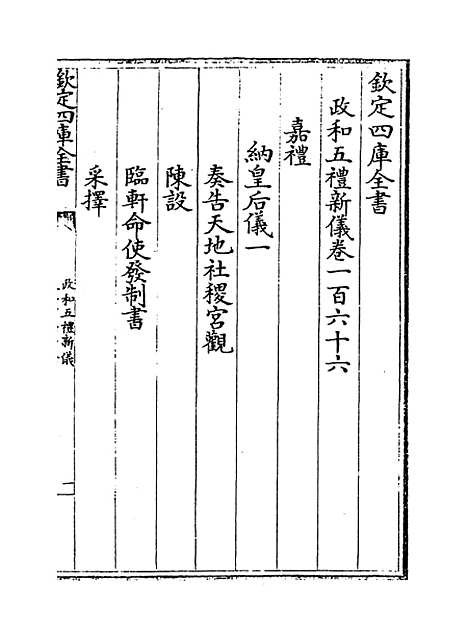 欽定四庫全書
政和五禮新儀卷一百六十六
嘉禮
納皇后儀一
奏告天地社稷宮觀
陳設
臨軒命使發制書
采擇
欽定四庫全書
政和五禮新儀